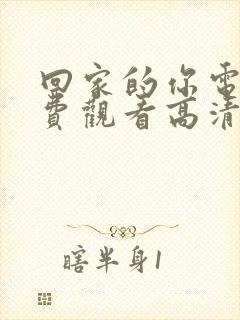 回家的你電
費觀看高清
瞎半身1